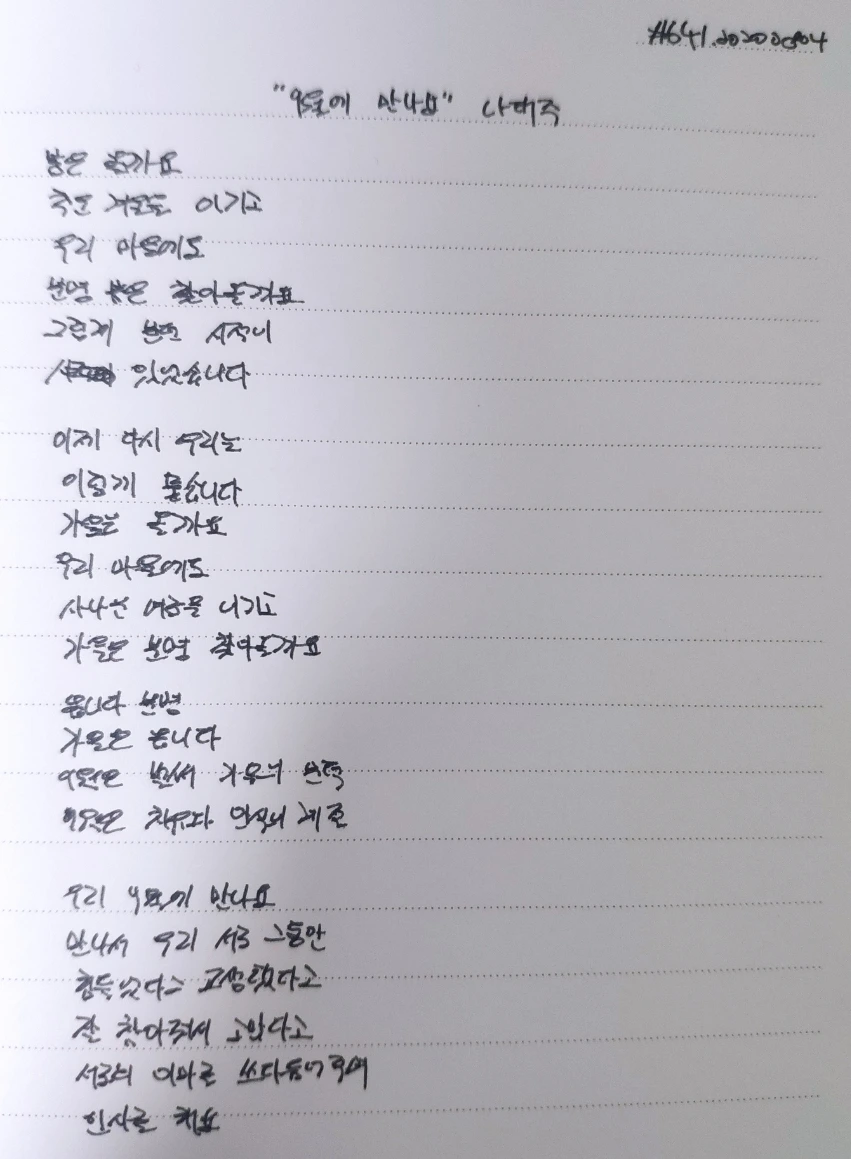 #641. 20200804
"9월에 만나요" 나태주
봄은 올까요
추운 겨울을 이기고
우리 마음에도
분명 봄은 찾아올까요
그렇게 묻던 시절이
있었습니다
이제 다시 우리는
이렇게 묻습니다
가을은 올까요
우리 마음에도
사나운 여름을 이기고
가을은 분명 찾아올까요
옵니다 분명
가을은 옵니다
9월은 벌써 가을의 문턱
9월은 치유와 안식의 계절
우리 9월에 만나요
만나서 우리 서로 그동안
힘들었다고 고생했다고
잘 참아줘서 고맙다고
서로의 이마를 쓰다듬어주며
인사를 해요